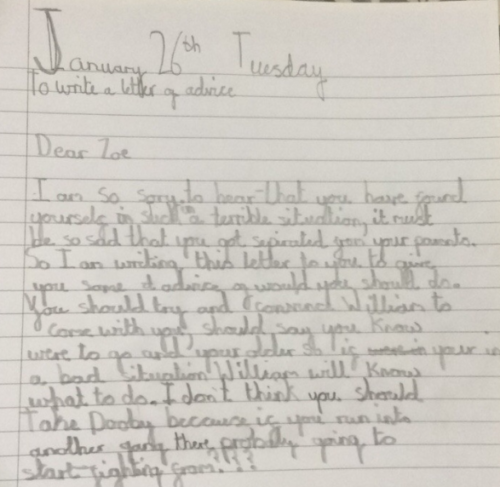 January 26th Tuesday
To write a letter of advice
Dear Zoe
I am so sorry to hear that you have found
yourself in such a terrible situation, it must
be so sad that you got seperated from your parents.
So I am writing this letter to you to give
you some advice of would you should do.
You should try and William to
come with you should say you know
were to go and your older so if your in
a bad situation William will know
what to do. I don't think you should
Take Dooby because if you run into
another gang there probally going to
start fighting